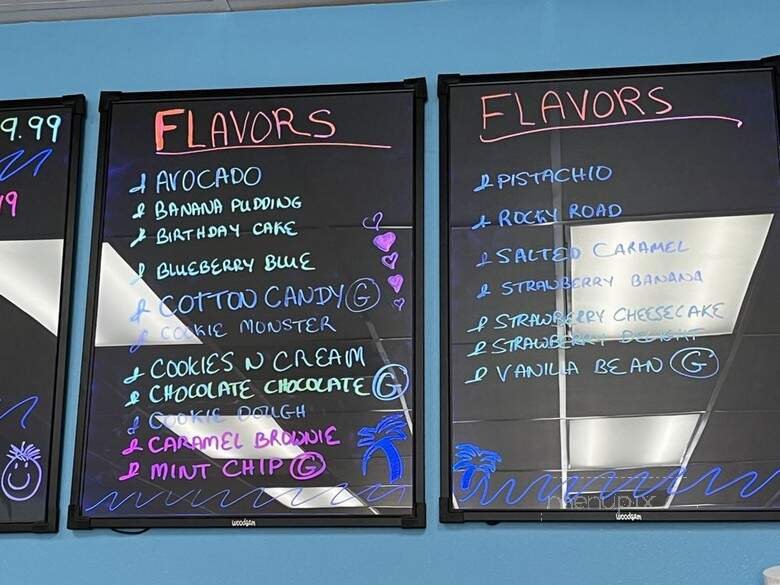 9.99
19
FLAVORS
AVOCADO
BANANA PUDDING
BIRTHDAY CAKE
BLUEBERRY BLUE
COTTON CANDY G
COOKIE MONSTER
COOKIES N CREAM
CHOCOLATE CHOCOLATE G
COOKIE DOUGH
CARAMEL BROWNIE
MINT CHIP G
woodsam
FLAVORS
PISTACHIO
ROCKY ROAD
SALTED CARAMEL
STRAWBERRY BANANA
STRAWBERRY CHEESECAKE
STRAWBERRY DELIGHT
VANILLA BEAN G
menupix
woodsam